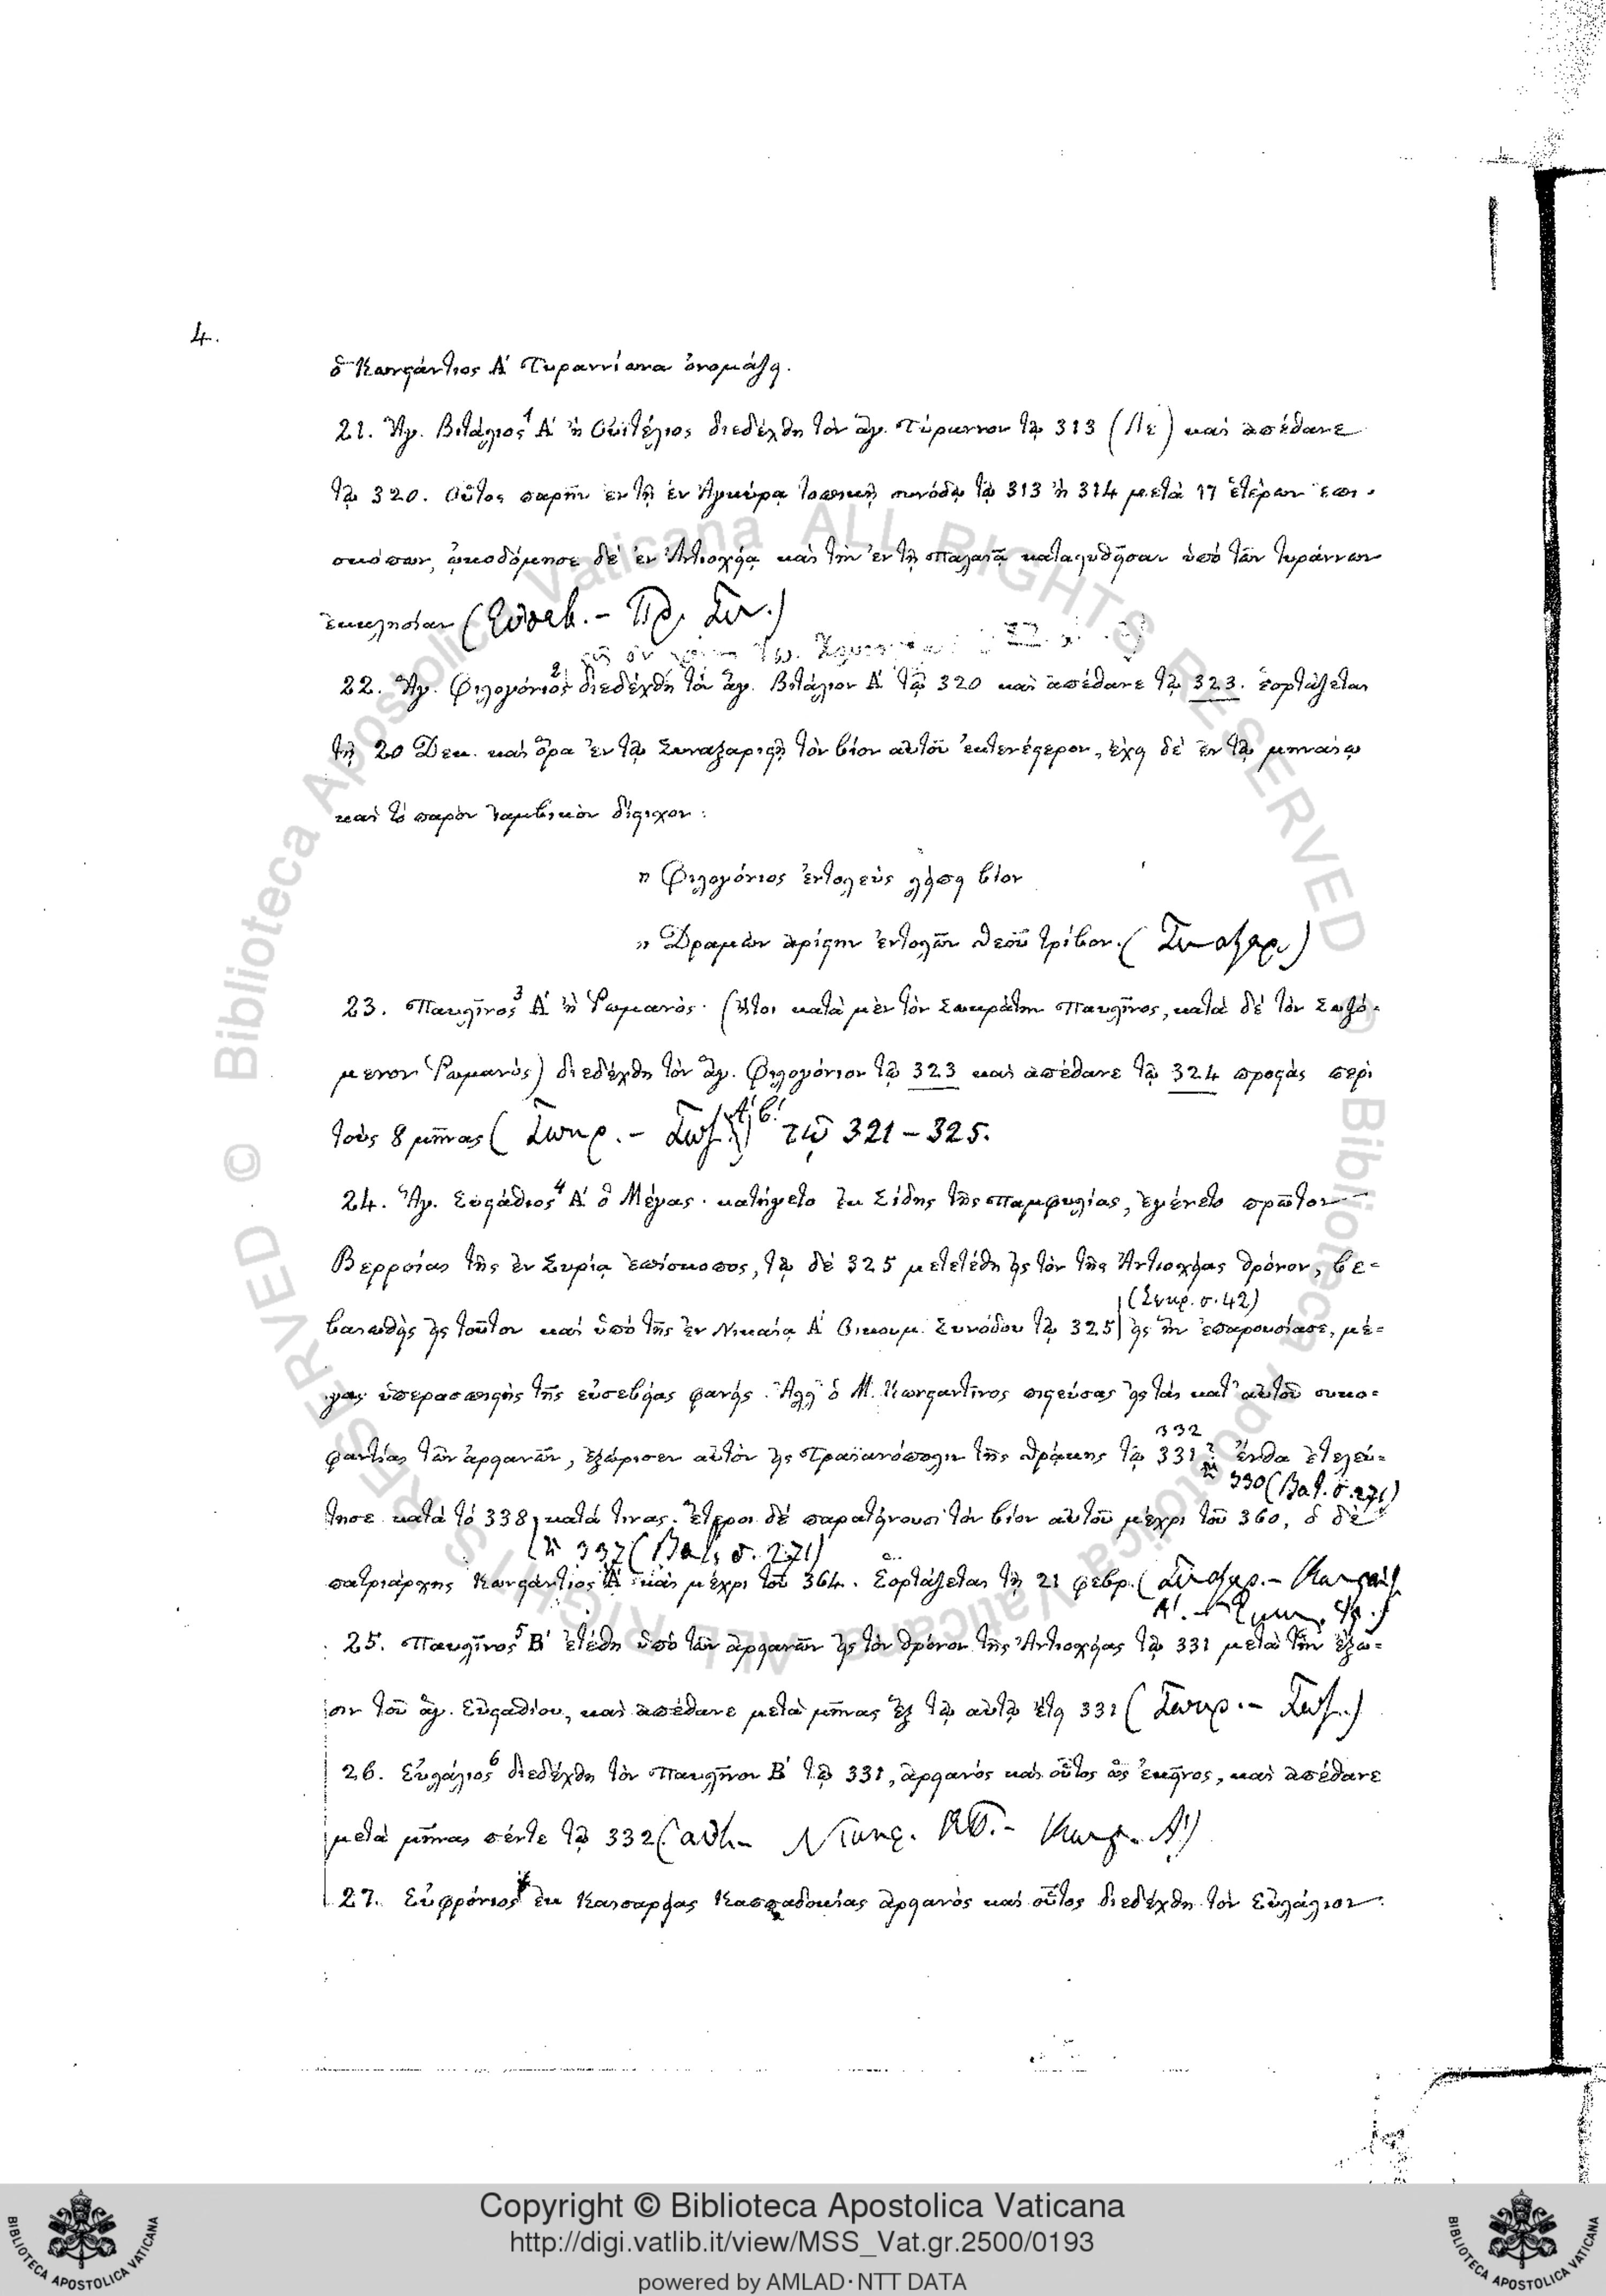 4.
ὁ Κωνστάντιος Α΄ Τυραννίωνα ὀνομάζει.
21. Ἅγ. Βιτάλιος¹ Α΄ ἢ Οὐϊτέλιος διεδέχθη τὸν ἅγ. Τύραννον τῷ 313 (Λε) καὶ ἀπέθανε
τῷ 320. Οὗτος παρῆν ἐν τῇ ἐν Ἀγκύρᾳ τοπικῇ συνόδῳ τῷ 313 ἢ 314 μετὰ 17 ἑτέρων ἐπι-
σκόπων, ᾠκοδόμησε δὲ ἐν Ἀντιοχείᾳ καὶ τὴν ἐν τῇ Παλαιᾷ καταλυθεῖσαν ὑπὸ τῶν τυράννων
ἐκκλησίαν (Εὐσεβ. –
22. Ἅγ. Φιλογόνιος² διεδέχθη τὸν ἅγ. Βιτάλιον Α΄ τῷ 320 καὶ ἀπέθανε τῷ 323. ἑορτάζεται
τῇ 20 Δεκ. καὶ ὅρα ἐν τῷ Συναξαριστῇ τὸν βίον αὐτοῦ ἐκτενέστερον, ἔχει δὲ ἐν τῷ μηναίῳ
καὶ τὸ παρὸν ἰαμβικὸν δίστιχον:
" Φιλογόνιος ἐντολεὺς λείπει βίον
" Δραμὼν ἀρίστην ἐντολῶν Θεοῦ τρίβον. (Συναξαρ.)
23. Παυλῖνος³ Α΄ ἢ Ῥωμανὸς· (ἤτοι κατὰ μὲν τὸν Σωκράτην Παυλῖνος, κατὰ δὲ τὸν Σωζό-
μενον Ῥωμανός) διεδέχθη τὸν ἅγ. Φιλογόνιον τῷ 323 καὶ ἀπέθανε τῷ 324 προστὰς περὶ
τοὺς 8 μῆνας (Σωκρ. – Σωζ. Α΄, β΄.) τῷ 321 – 325.
24. Ἅγ. Εὐστάθιος⁴ Α΄ ὁ Μέγας· κατήγετο ἐκ Σίδης τῆς Παμφυλίας, ἐγένετο πρῶτον
Βερροίας τῆς ἐν Συρίᾳ ἐπίσκοπος, τῷ δὲ 325 μετετέθη εἰς τὸν τῆς Ἀντιοχείας θρόνον, βε-
(Σωκρ. σ. 42)
βαιωθεὶς εἰς τοῦτον καὶ ὑπὸ τῆς ἐν Νικαίᾳ Α΄ Οἰκουμ. Συνόδου τῷ 325 εἰς ἣν ἐπαρουσίασε, μέ-
γας ὑπερασπιστὴς τῆς εὐσεβείας φανείς. Ἀλλ' ὁ Μ. Κωνσταντῖνος πιστεύσας εἰς τὰς κατ' αὐτοῦ συκο-
332
φαντίας τῶν ἀρειανῶν, ἐξώρισεν αὐτὸν εἰς Τραϊανόπολιν τῆς Θρᾴκης τῷ 331· ἔνθα ἐτελεύ-
ἢ 330 (Βατ. σ. 271)
τησε κατὰ τὸ 338, κατά τινας. ἕτεροι δὲ παρατείνουσι τὸν βίον αὐτοῦ μέχρι τοῦ 360, ὁ δὲ
(ἢ 337 (Βατ. σ. 271)
πατριάρχης Κωνστάντιος Α΄ καὶ μέχρι τοῦ 364. Ἑορτάζεται τῇ 21 φεβρ. (Συναξαρ. – Κωνστάντ.
Α΄. –
25. Παυλῖνος⁵ Β΄ ἐτέθη ὑπὸ τῶν ἀρειανῶν εἰς τὸν θρόνον τῆς Ἀντιοχείας τῷ 331 μετὰ τὴν ἔξω-
σιν τοῦ ἁγ. Εὐσταθίου, καὶ ἀπέθανε μετὰ μῆνας ἓξ τῷ αὐτῷ ἔτει 331 (Σωκρ. – Σωζ.)
26. Εὐλάλιος⁶ διεδέχθη τὸν Παυλῖνον Β΄ τῷ 331, ἀρειανὸς καὶ οὗτος ὡς ἐκεῖνος, καὶ ἀπέθανε
μετὰ μῆνας πέντε τῷ 332 (αὐτ. – Κωνστ. Α΄)
27. Εὐφρόνιος ἐκ Καισαρείας Καππαδοκίας ἀρειανὸς καὶ οὗτος διεδέχθη τὸν Εὐλάλιον
© Biblioteca Apostolica Vaticana ALL RIGHTS RESERVED
© Biblioteca Apostolica Vaticana ALL RIGHTS RESERVED
Copyright © Biblioteca Apostolica Vaticana
http://digi.vatlib.it/view/MSS_Vat.gr.2500/0193
powered by AMLAD·NTT DATA
BIBLIOTECA APOSTOLICA VATICANA
BIBLIOTECA APOSTOLICA VATICANA